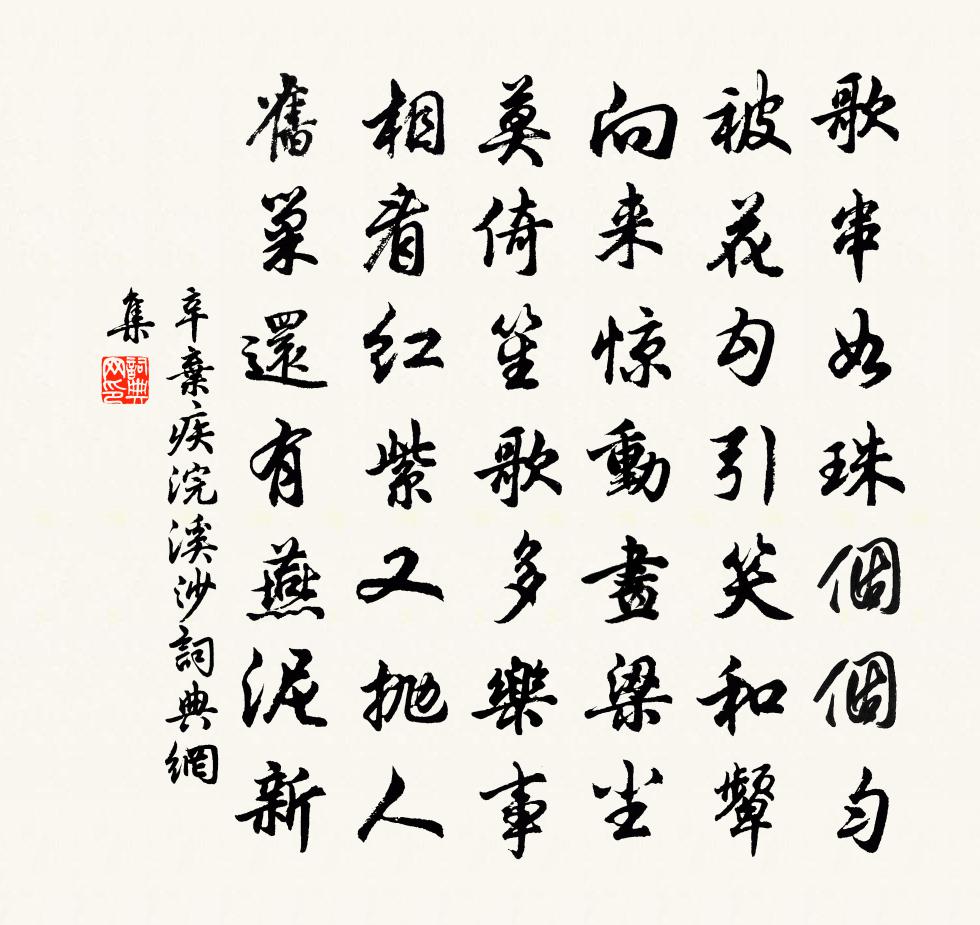 歌串如珠個個勻
被花勾引笑和顰
向来惊動畫梁尘
莫倚笙歌多樂事
相看红紫又抛人
舊巢還有燕泥新
辛棄疾浣溪沙詞典網
集
詞典网印